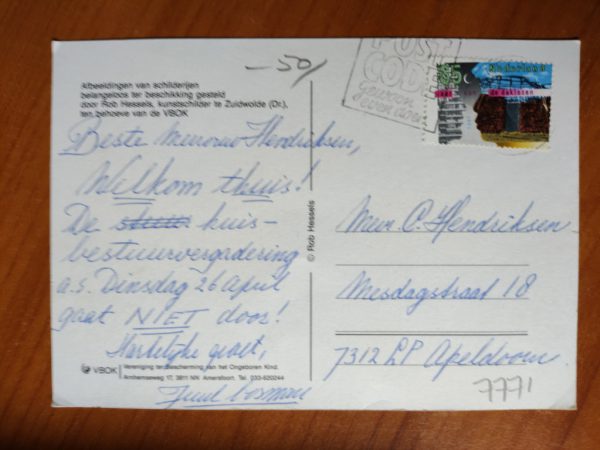 Afbeeldingen van schilderijen
belangeloos ter beschikking gesteld
door Rob Hessels, kunstschilder te Zuidwolde (Dr.),
ten behoeve van de VBOK
-50/
POST
CODE
gewoon
even doen
Nederland
Beste Mevrouw Hendriksen,
Welkom thuis!
De huis-
bestuurvergadering
a.s. Dinsdag 26 April
gaat NIET door!
Hartelijke groet,
VBOK
Vereniging ter Bescherming van het Ongeboren Kind.
Arnhemseweg 17, 3811 NN Amersfoort. Tel. 033-620244
© Rob Hessels
Mevr. C. Hendriksen
Mesdagstraat 18
7312 LP Apeldoorn
7771